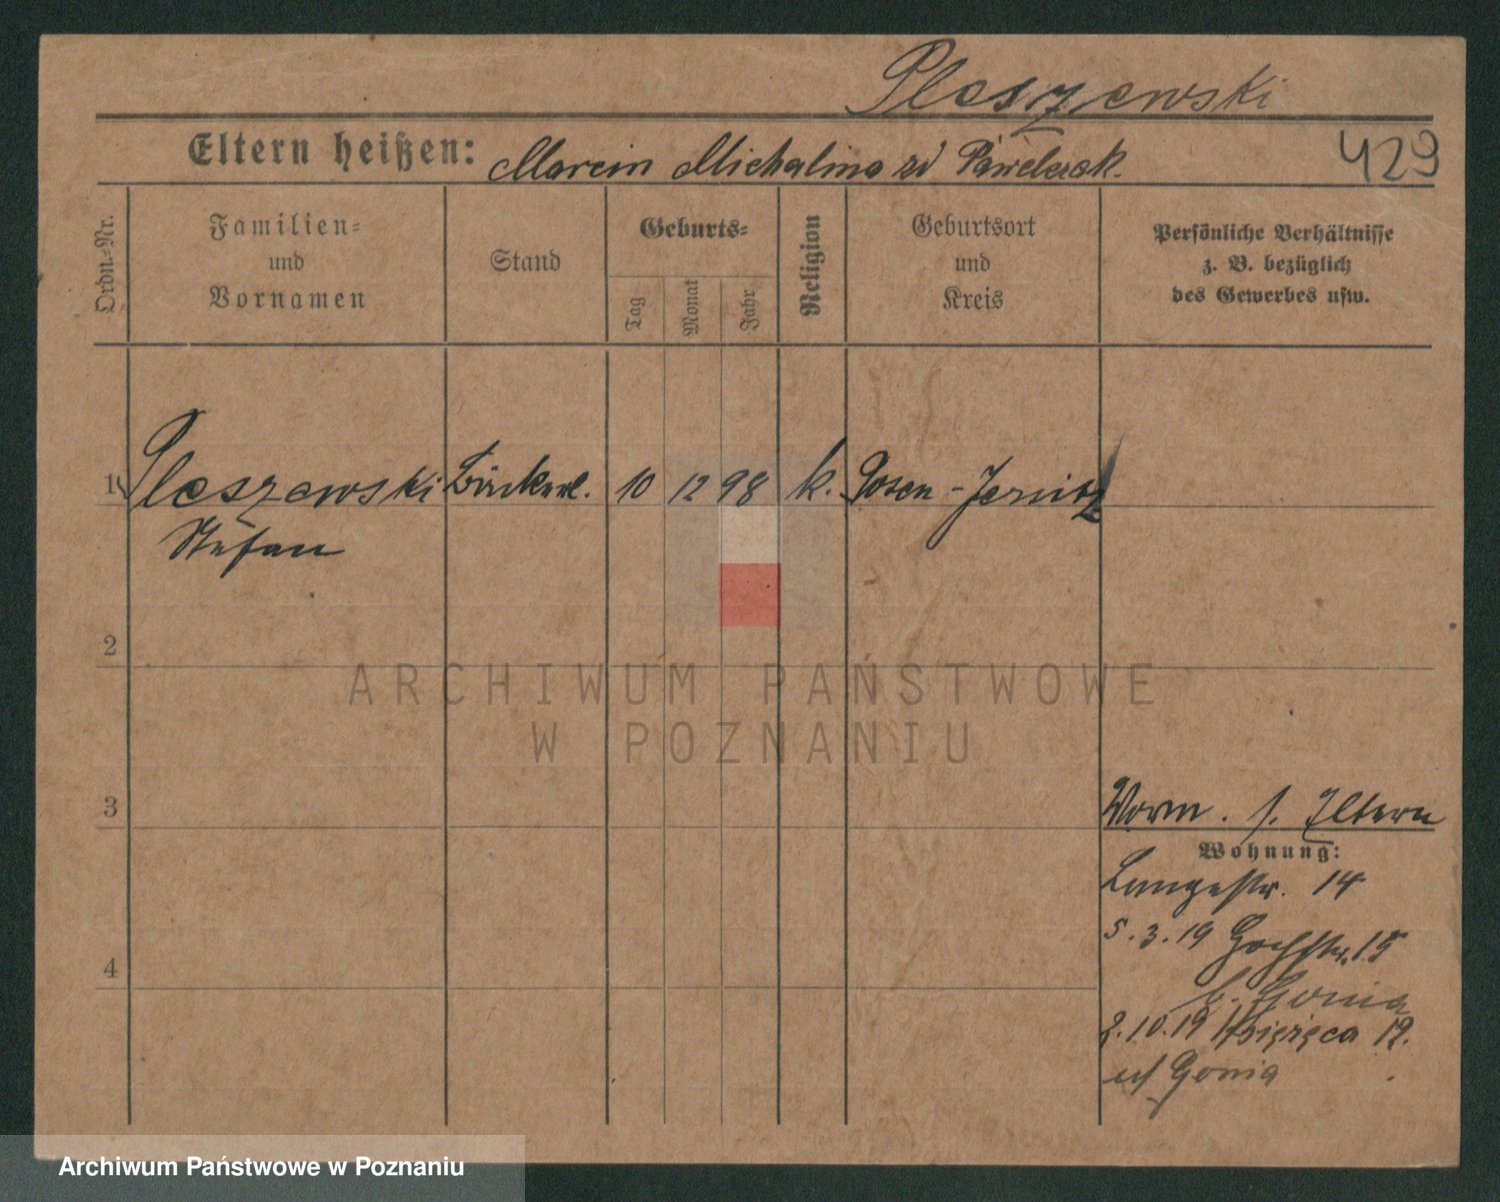 Pleszewski
Eltern heißen: Marcin Michalina zd Pawelczak.
429
Ordn.-Nr.
Familien-
und
Vornamen
Stand
Geburts-
Tag
Monat
Jahr
Religion
Geburtsort
und
Kreis
Persönliche Verhältnisse
z. B. bezüglich
des Gewerbes usw.
1 Pleszewski 10 12 98 k. Posen - Jersitz
Stefan
2
ARCHIWUM PAŃSTWOWE
W POZNANIU
3
Worm. s. Eltern
Wohnung:
Langestr. 14
5.3.19 Hochstr. 15
b. Gonia
4
2.10.19 Księżęca 12.
u/ Gonia
Archiwum Państwowe w Poznaniu